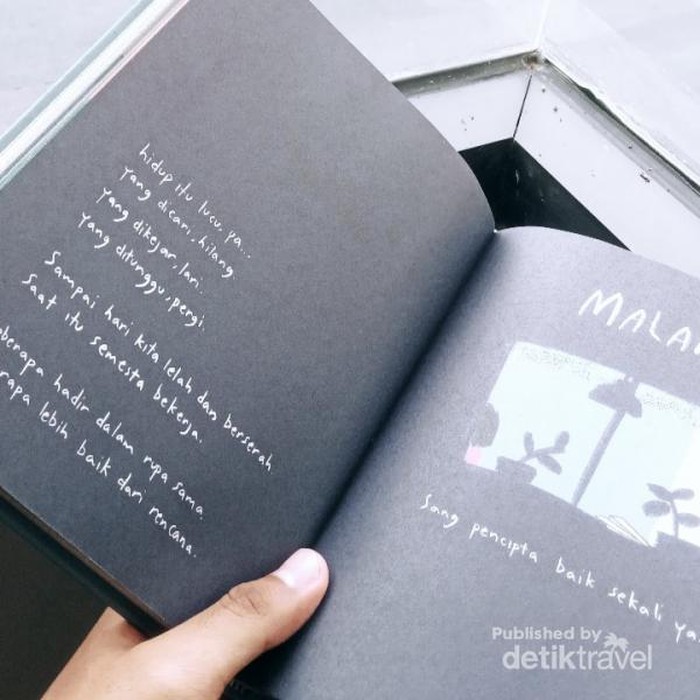 hidup itu lucu, ya...
yang dicari, hilang.
yang dikejar, lari.
yang ditunggu, pergi.
Sampai hari kita lelah dan berserah
Saat itu semesta bekerja.
beberapa hadir dalam rupa sama.
lebih baik dari rencana.
Sang pencipta baik sekali
Published by
detiktravel